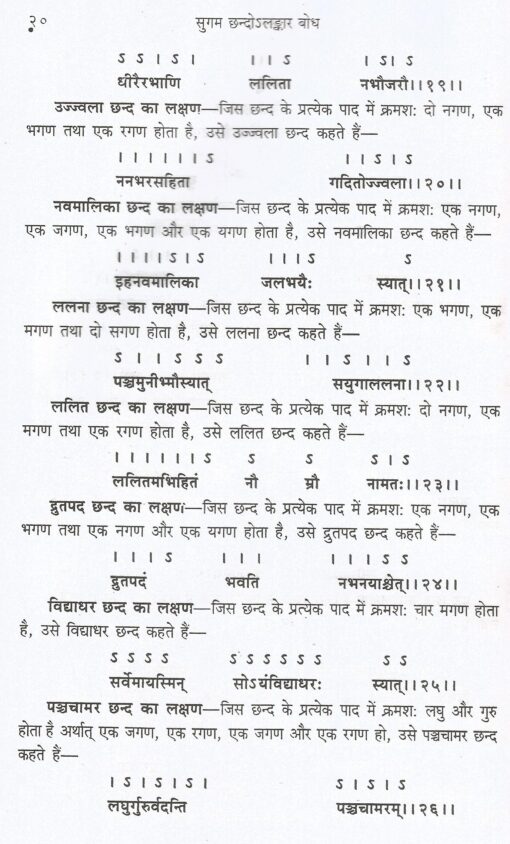 २०
सुगम छन्दोऽलङ्कार बोध
ऽ ऽ । ऽ । । । ऽ । ऽ। ऽ
धीरैरभाणि ललिता नभौजरौ।।१९।।
उज्ज्वला छन्द का लक्षण—जिस छन्द के प्रत्येक पाद में क्रमशः दो नगण, एक
भगण तथा एक रगण होता है, उसे उज्ज्वला छन्द कहते हैं—
। । । । । । ऽ । । ऽ । ऽ
ननभरसहिता गदितोज्ज्वला।।२०।।
नवमालिका छन्द का लक्षण—जिस छन्द के प्रत्येक पाद में क्रमशः एक नगण,
एक जगण, एक भगण और एक यगण होता है, उसे नवमालिका छन्द कहते हैं—
। । । । ऽ । ऽ । । । ऽ ऽ
इहनवमालिका जलभयैः स्यात्।।२१।।
ललना छन्द का लक्षण—जिस छन्द के प्रत्येक पाद में क्रमशः एक भगण, एक
मगण तथा दो सगण होता है, उसे ललना छन्द कहते हैं—
ऽ । । ऽ ऽ ऽ । । ऽ । । ऽ
पञ्चमुनीभ्मौस्यात् सयुगाललना।।२२।।
ललित छन्द का लक्षण—जिस छन्द के प्रत्येक पाद में क्रमशः दो नगण, एक
मगण तथा एक रगण होता है, उसे ललित छन्द कहते हैं—
। । । । । । ऽ ऽ ऽ ऽ । ऽ
ललितमभिहितं नौ म्रौ नामतः।।२३।।
द्रुतपद छन्द का लक्षण—जिस छन्द के प्रत्येक पाद में क्रमशः एक नगण, एक
भगण तथा एक नगण और एक यगण होता है, उसे द्रुतपद छन्द कहते हैं—
। । । ऽ । । । । । । ऽ ऽ
द्रुतपदं भवति नभनयाश्चेत्।।२४।।
विद्याधर छन्द का लक्षण—जिस छन्द के प्रत्येक पाद में क्रमशः चार मगण होता
है, उसे विद्याधर छन्द कहते हैं—
ऽ ऽ ऽ ऽ ऽ ऽ ऽ ऽ ऽ ऽ ऽ ऽ
सर्वेमायस्मिन् सोऽयंविद्याधरः स्यात्।।२५।।
पञ्चचामर छन्द का लक्षण—जिस छन्द के प्रत्येक पाद में क्रमशः लघु और गुरु
होता है अर्थात् एक जगण, एक रगण, एक जगण और एक रगण हो, उसे पञ्चचामर छन्द
कहते हैं—
। ऽ । ऽ । ऽ । ऽ । ऽ । ऽ
लघुर्गुरुर्वदन्ति पञ्चचामरम्।।२६।।